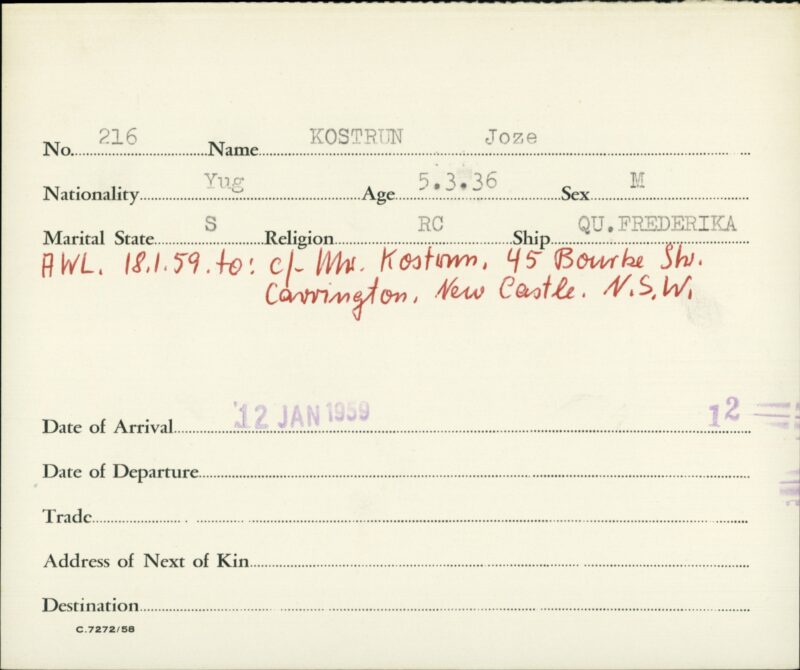 No. 216 Name KOSTRUN Joze
Nationality Yug Age 5.3.36 Sex M
Marital State S Religion RC Ship QU.FREDERIKA
AWL. 18.1.59. to: c/- Mr. Kostrun, 45 Bourke Str.
Carrington, New Castle. N.S.W.
Date of Arrival 12 JAN 1959 12
Date of Departure
Trade
Address of Next of Kin
Destination
C.7272/58